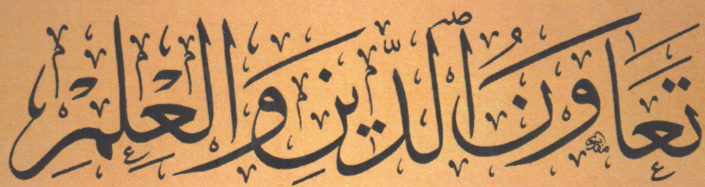 تَعَاوُنُ ٱلدِّينِ وَالْعِلْمِ